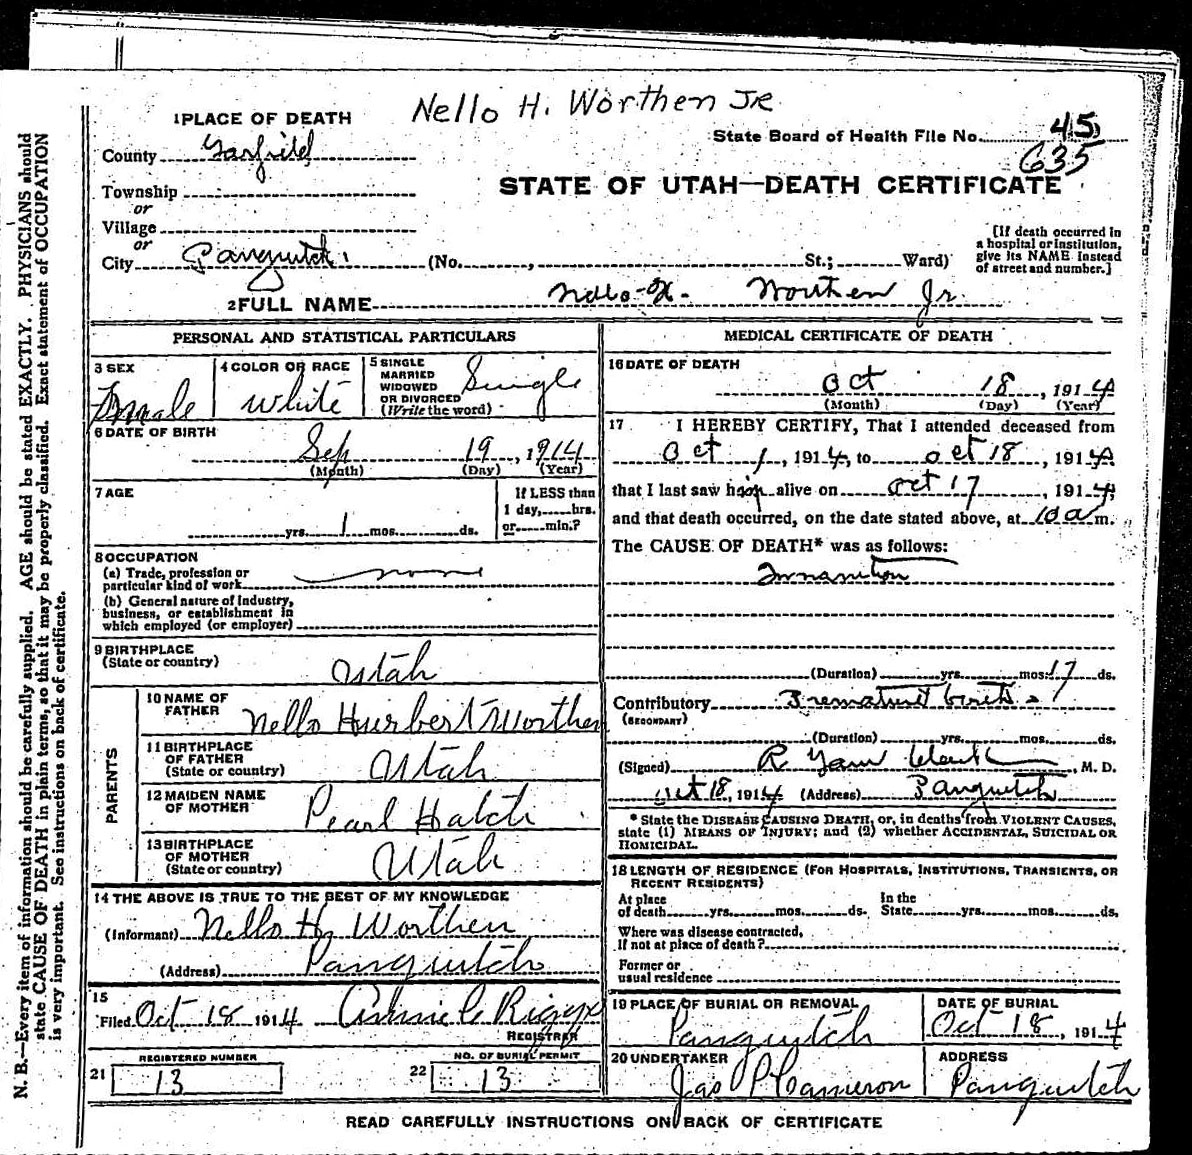 Nello H. Worthen Jr
1 PLACE OF DEATH
State Board of Health File No. 45
635
County Garfield
STATE OF UTAH—DEATH CERTIFICATE
Township
or
Village
or
City Panguitch. (No. St.; Ward)
[If death occurred in a hospital or institution, give its NAME instead of street and number.]
2 FULL NAME Nello H. Worthen Jr.
PERSONAL AND STATISTICAL PARTICULARS
3 SEX
male
4 COLOR OR RACE
white
5 SINGLE
MARRIED
WIDOWED
OR DIVORCED
(Write the word)
Single
6 DATE OF BIRTH
Sep 19, 1914
(Month) (Day) (Year)
7 AGE
yrs. 1 mos. ds.
If LESS than
1 day, hrs.
or min.?
8 OCCUPATION
(a) Trade, profession or
particular kind of work none
(b) General nature of industry,
business, or establishment in
which employed (or employer)
9 BIRTHPLACE
(State or country)
Utah
PARENTS
10 NAME OF
FATHER
Nello Hurbert Worthen
11 BIRTHPLACE
OF FATHER
(State or country)
Utah
12 MAIDEN NAME
OF MOTHER
Pearl Hatch
13 BIRTHPLACE
OF MOTHER
(State or country)
Utah
14 THE ABOVE IS TRUE TO THE BEST OF MY KNOWLEDGE
(Informant) Nello H. Worthen
(Address) Panguitch
15
Filed Oct 18 1914 Riggs
REGISTRAR
REGISTERED NUMBER
21 13
NO. OF BURIAL PERMIT
22 13
MEDICAL CERTIFICATE OF DEATH
16 DATE OF DEATH
Oct 18, 1914
(Month) (Day) (Year)
17 I HEREBY CERTIFY, That I attended deceased from
Oct 1, 1914, to Oct 18, 1914,
that I last saw him alive on Oct 17, 1914,
and that death occurred, on the date stated above, at 10 a m.
The CAUSE OF DEATH* was as follows:
Innanition
(Duration) yrs. mos. 17 ds.
Contributory Premature birth
(SECONDARY)
(Duration) yrs. mos. ds.
(Signed) R , M. D.
Oct 18, 1914 (Address) Panguitch
* State the DISEASE CAUSING DEATH, or, in deaths from VIOLENT CAUSES,
state (1) MEANS OF INJURY; and (2) whether ACCIDENTAL, SUICIDAL OR
HOMICIDAL.
18 LENGTH OF RESIDENCE (FOR HOSPITALS, INSTITUTIONS, TRANSIENTS, OR
RECENT RESIDENTS)
At place In the
of death yrs. mos. ds. State yrs. mos. ds.
Where was disease contracted,
if not at place of death?
Former or
usual residence
19 PLACE OF BURIAL OR REMOVAL
Panguitch
DATE OF BURIAL
Oct 18, 1914
20 UNDERTAKER
Jas P Cameron
ADDRESS
Panguitch
READ CAREFULLY INSTRUCTIONS ON BACK OF CERTIFICATE
N. B.—Every item of information should be carefully supplied. AGE should be stated EXACTLY. PHYSICIANS should
state CAUSE OF DEATH in plain terms, so that it may be properly classified. Exact statement of OCCUPATION
is very important. See instructions on back of certificate.